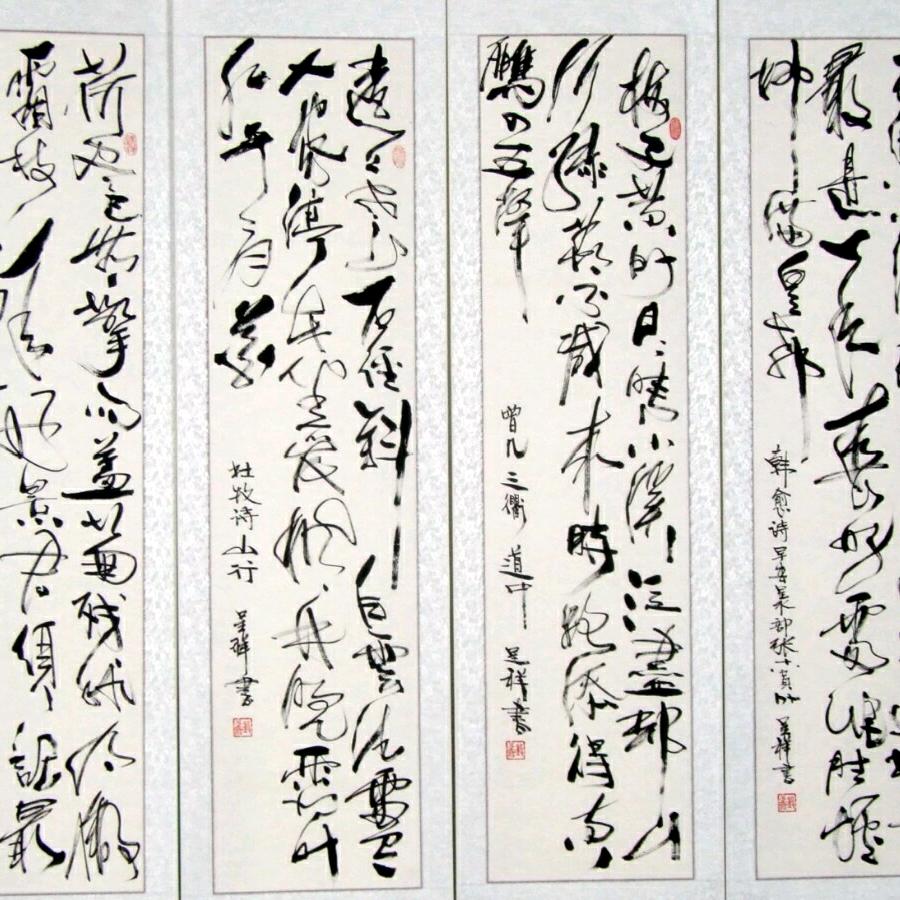 最是一年春好处绝胜烟
柳满皇都
韩愈诗早春呈水部张十八员外 祥书
梅子黄时日日晴小溪泛尽却山
行绿荫不减来时路添得黄
鹂四五声
曾几三衢道中 祥书
远上寒山石径斜白云深处有
人家停车坐爱枫林晚霜叶
红于二月花
杜牧诗山行 祥书
荷尽已无擎雨盖菊残犹有傲
霜枝一年好景君须记最